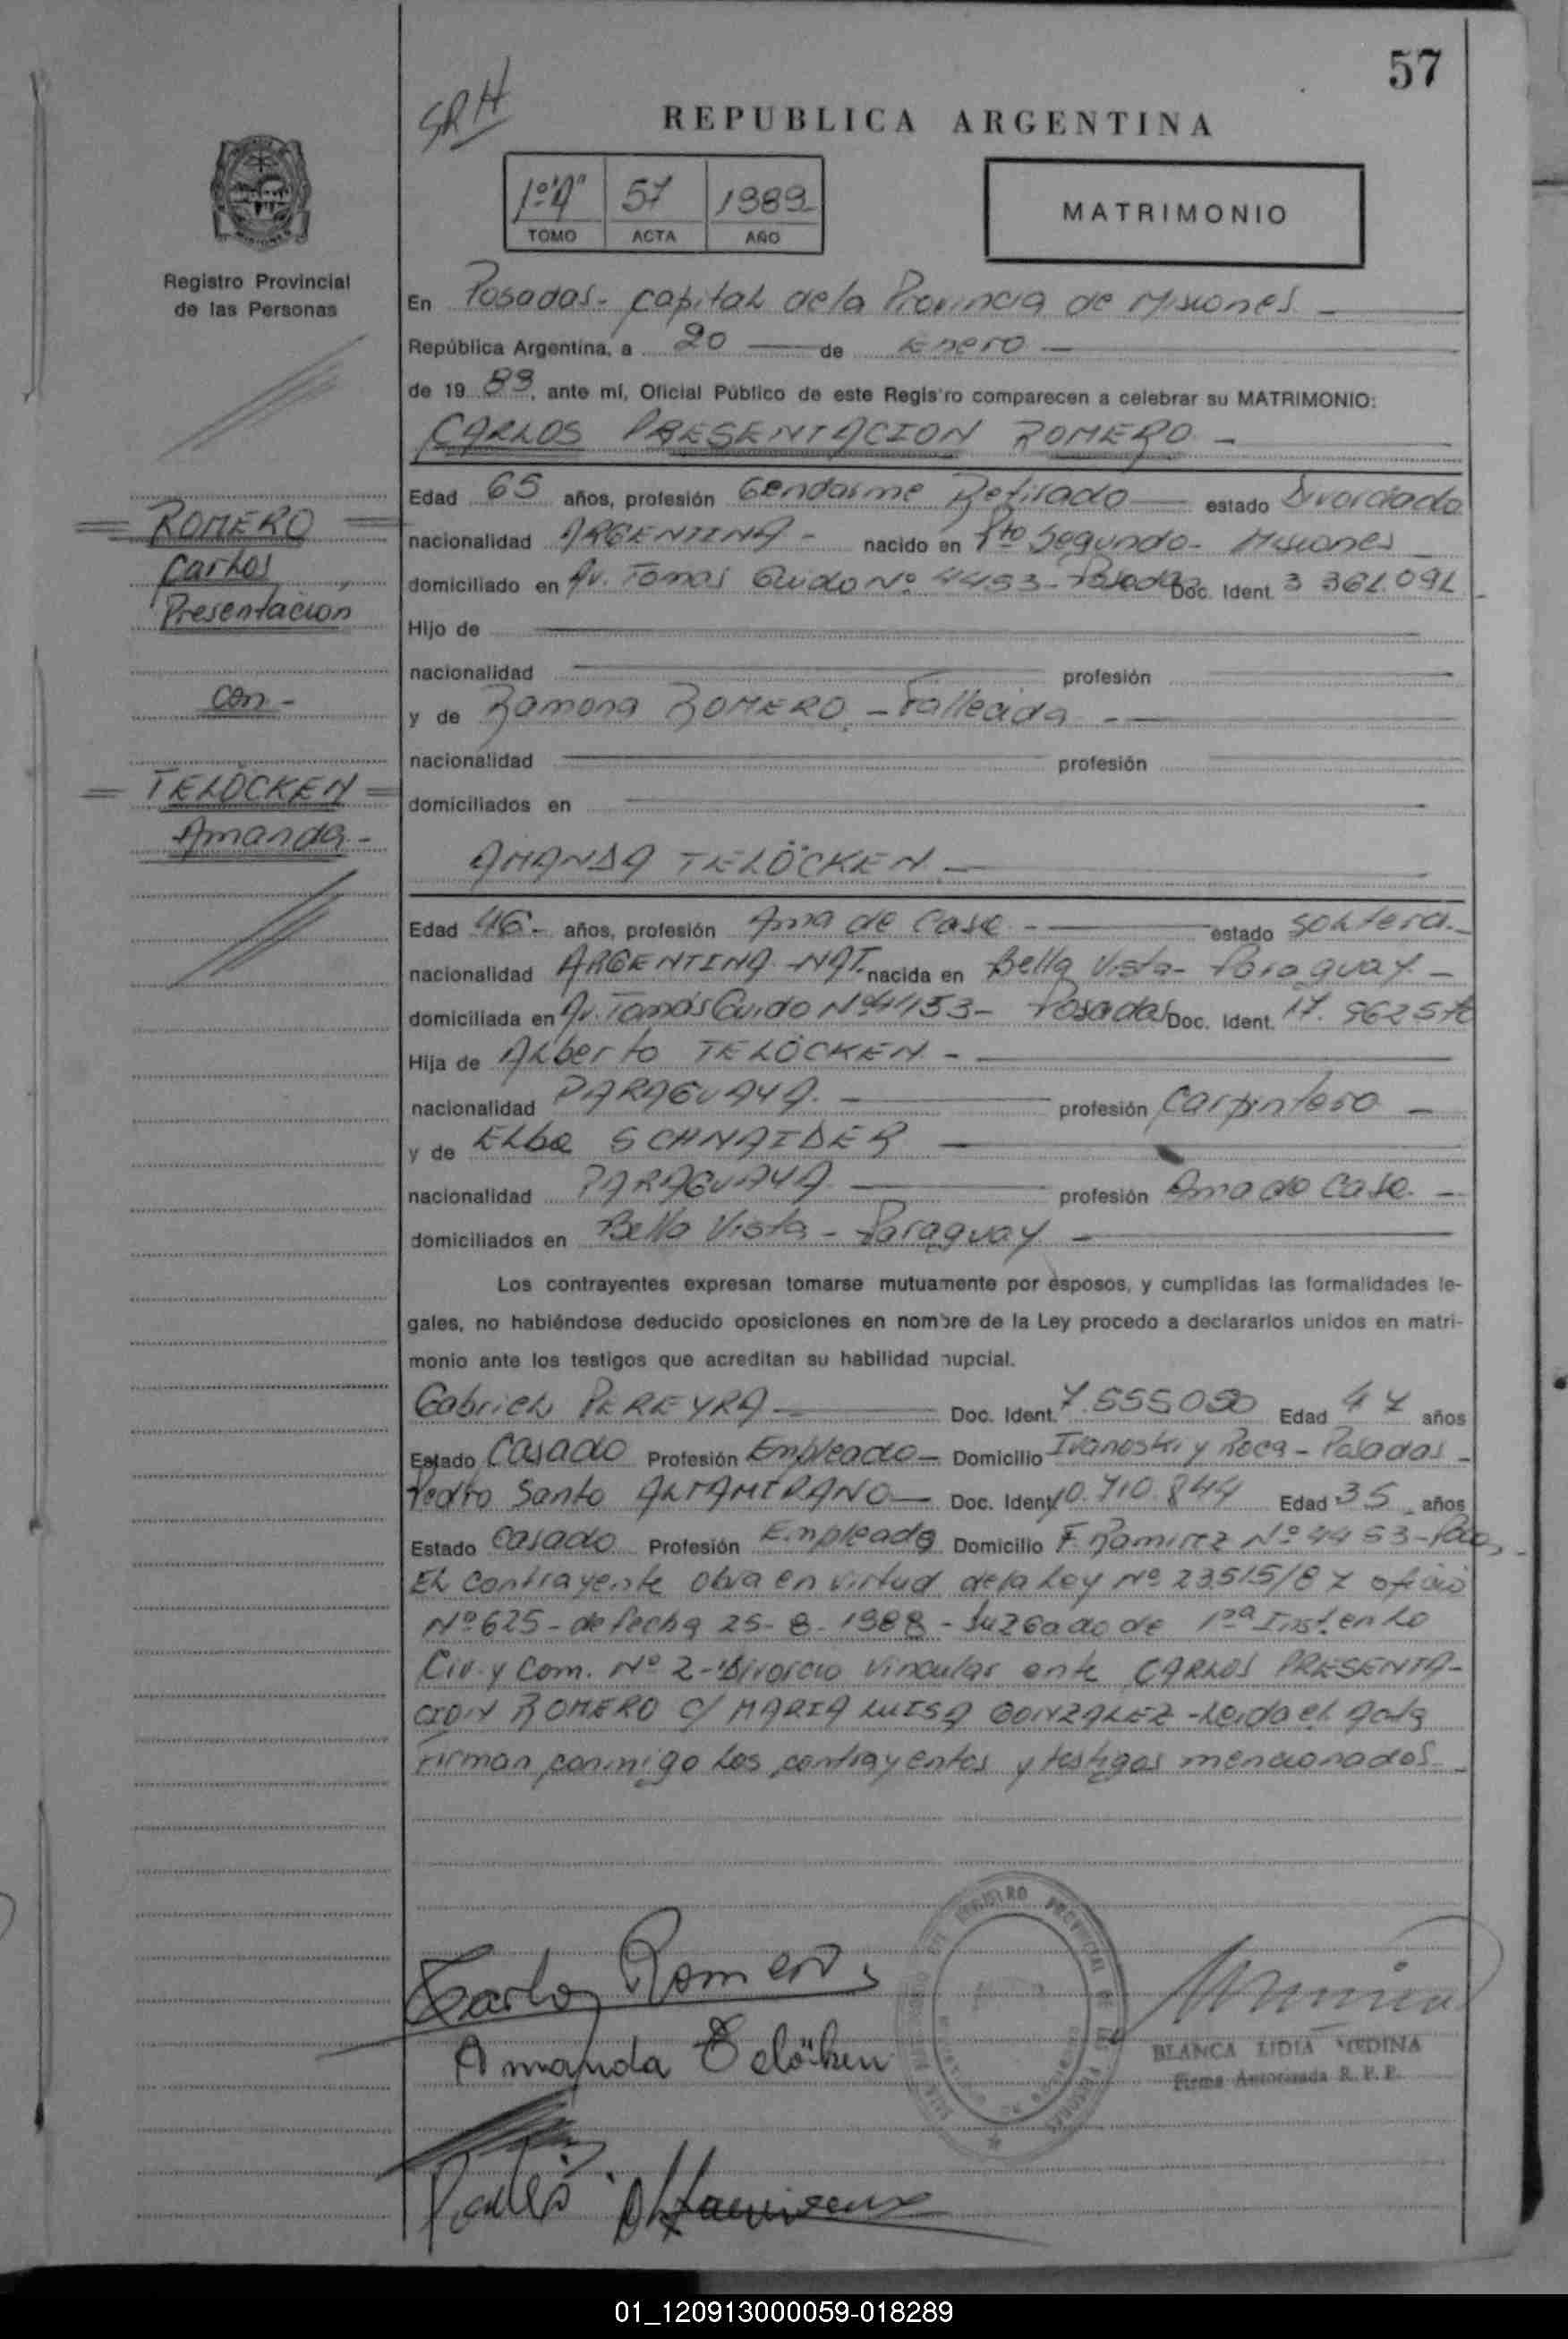 57
SRH
REPUBLICA ARGENTINA
1º "A" 57 1989
TOMO ACTA AÑO
MATRIMONIO
Registro Provincial
de las Personas
En Posadas - capital de la Provincia de Misiones
República Argentina, a 20 de Enero
de 19 89, ante mí, Oficial Público de este Registro comparecen a celebrar su MATRIMONIO:
CARLOS PRESENTACION ROMERO -
ROMERO
Carlos
Presentacion
con -
TELÖCKEN
Amanda -
Edad 65 años, profesión Gendarme Retirado estado Divorciado
nacionalidad ARGENTINA - nacido en Pto Segundo - Misiones
domiciliado en Av. Tomas Guido Nº 4453 - Posadas Doc. Ident. 3 362.092
Hijo de
nacionalidad profesión
y de Ramona ROMERO - Fallecida -
nacionalidad profesión
domiciliados en
AMANDA TELÖCKEN -
Edad 46 - años, profesión Ama de Casa - estado soltera -
nacionalidad ARGENTINA - NAT. nacida en Bella Vista - Paraguay -
domiciliada en Av. Tomás Guido Nº 4453 - Posadas Doc. Ident. 17. 962
Hija de Alberto TELÖCKEN -
nacionalidad PARAGUAYA - profesión Carpintero -
y de Elba SCHNAIDER -
nacionalidad PARAGUAYA - profesión Ama de Casa -
domiciliados en Bella Vista - Paraguay -
Los contrayentes expresan tomarse mutuamente por esposos, y cumplidas las formalidades le-
gales, no habiéndose deducido oposiciones en nombre de la Ley procedo a declararlos unidos en matri-
monio ante los testigos que acreditan su habilidad nupcial.
Gabriel PEREYRA Doc. Ident. 7.555050 Edad 47 años
Estado Casado Profesión Empleado - Domicilio Ivanoski y Roca - Posadas -
Pedro Santo ALTAMIRANO - Doc. Ident. 10.710.844 Edad 35 años
Estado Casado Profesión Empleado Domicilio F. Ramirez Nº 4453 -
El contrayente obra en virtud de la Ley Nº 23515/87 oficio
Nº 625 - de fecha 25-8-1988 - Juzgado de 1ra Inst. en lo
Civ. y Com. Nº 2 - Divorcio Vincular ente CARLOS PRESENTA-
CION ROMERO C/ MARIA LUISA GONZALEZ - Leida el Acta
Firman conmigo los contrayentes y testigos mencionados -
Carlos Romero
Amanda Telöcken
BLANCA LIDIA MEDINA
Firma Autorizada R. P. P.
01_120913000059-018289